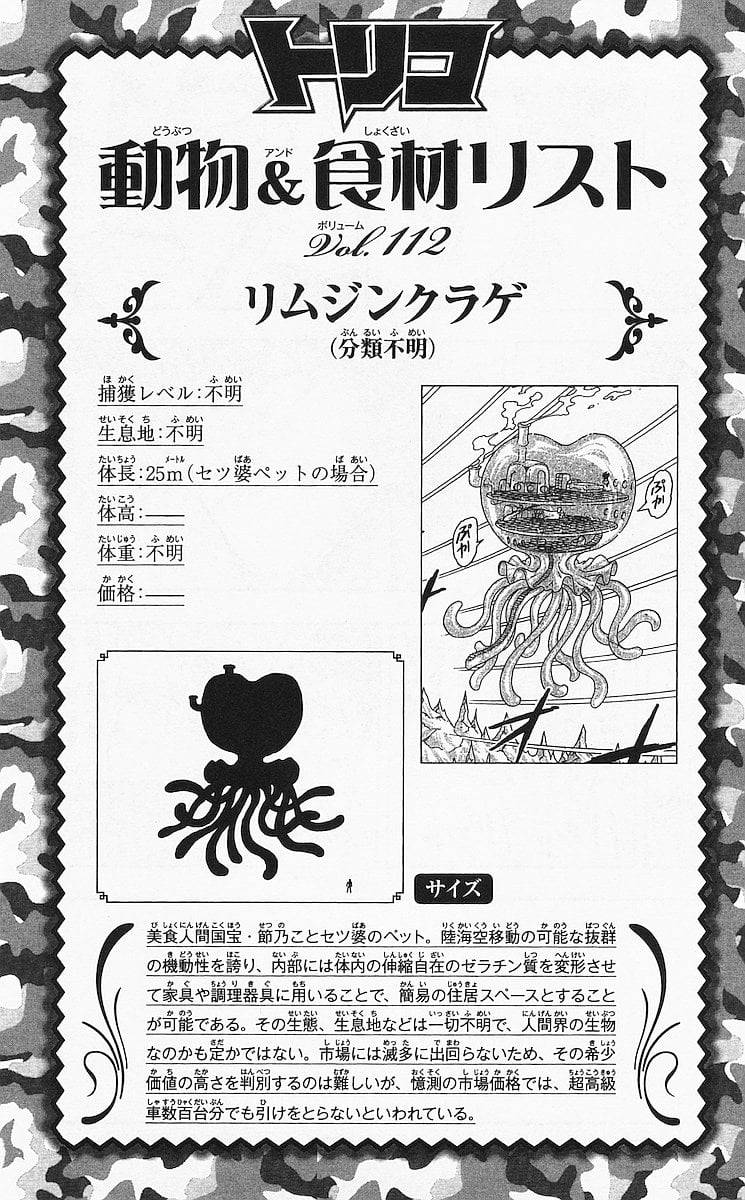 トリコ
動物&食材リスト
Vol.112
リムジンクラゲ
(分類不明)
捕獲レベル:不明
生息地:不明
体長:25m(セツ婆ペットの場合)
体高:——
体重:不明
価格:——
ぷか
ぷか
サイズ
美食人間国宝・節乃ことセツ婆のペット。陸海空移動の可能な抜群
の機動性を誇り、内部には体内の伸縮自在のゼラチン質を変形させ
て家具や調理器具に用いることで、簡易の住居スペースとすること
が可能である。その生態、生息地などは一切不明で、人間界の生物
なのかも定かではない。市場には滅多に出回らないため、その希少
価値の高さを判別するのは難しいが、憶測の市場価格では、超高級
車数百台分でも引けをとらないといわれている。